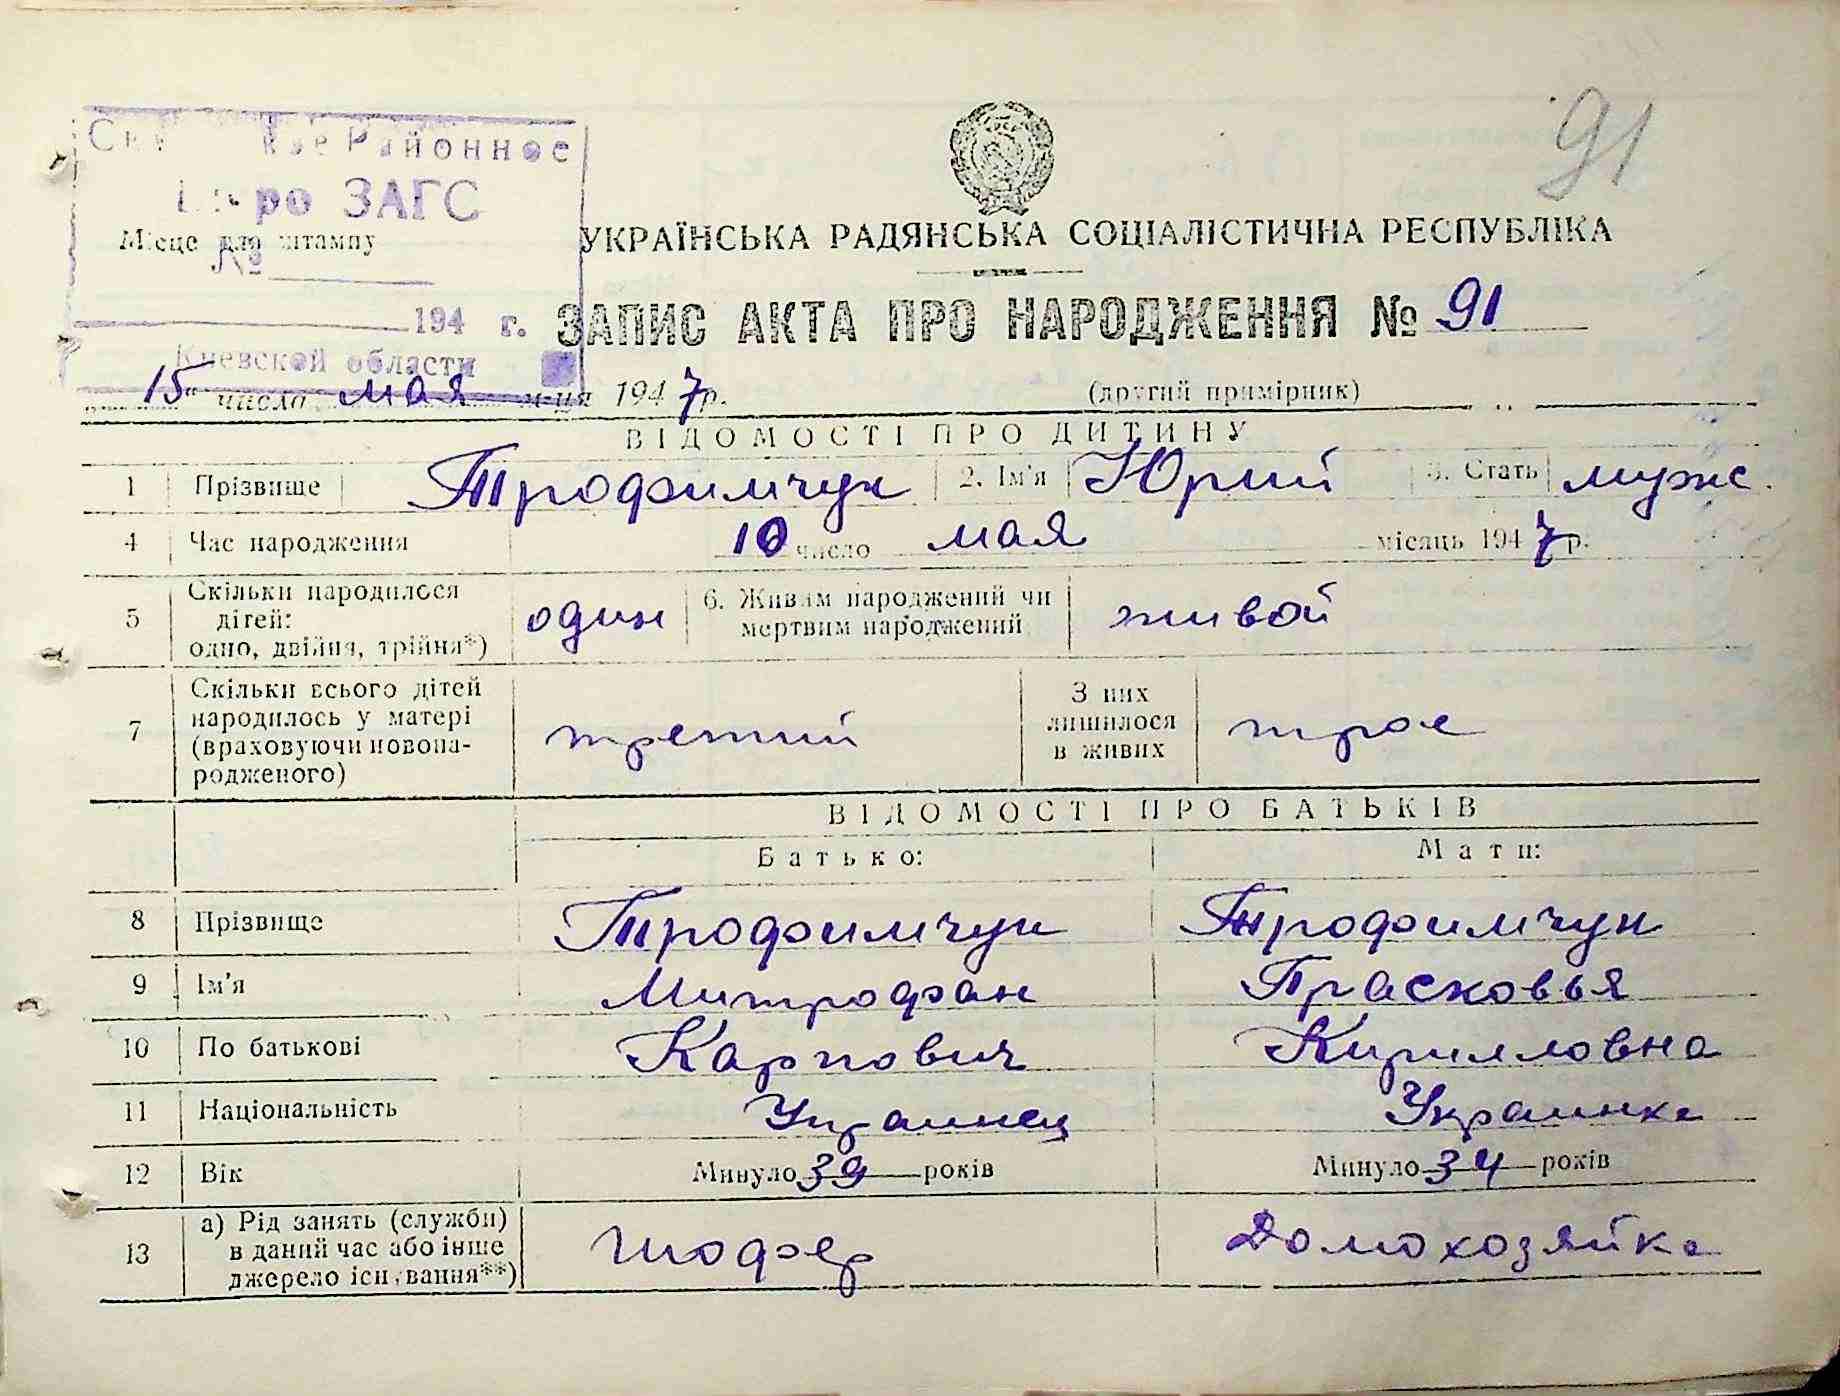 91
Районное
ЗАГС
Місце для штампу
№
УКРАЇНСЬКА РАДЯНСЬКА СОЦІАЛІСТИЧНА РЕСПУБЛІКА
194 г. ЗАПИС АКТА ПРО НАРОДЖЕННЯ № 91
Киевской области
15 " число мая м-ця 1947 р. (другий примірник)
ВІДОМОСТІ ПРО ДИТИНУ
1 Прізвище Трофимчук 2. Ім'я Юрий 3. Стать муж.
4 Час народження 10 число мая місяць 1947 р.
5 Скільки народилося дітей: одно, двійня, трійня*) один 6. Живим народжений чи мертвим народжений живой
7 Скільки всього дітей народилось у матері (враховуючи новонародженого) третий З них лишилося в живих трое
ВІДОМОСТІ ПРО БАТЬКІВ
Батько: Мати:
8 Прізвище Трофимчук Трофимчук
9 Ім'я Митрофан Прасковья
10 По батькові Карпович Кирилловна
11 Національність Украинец Украинка
12 Вік Минуло 39 років Минуло 34 років
13 а) Рід занять (служби) в даний час або інше джерело існування**) шофер Домохозяйка